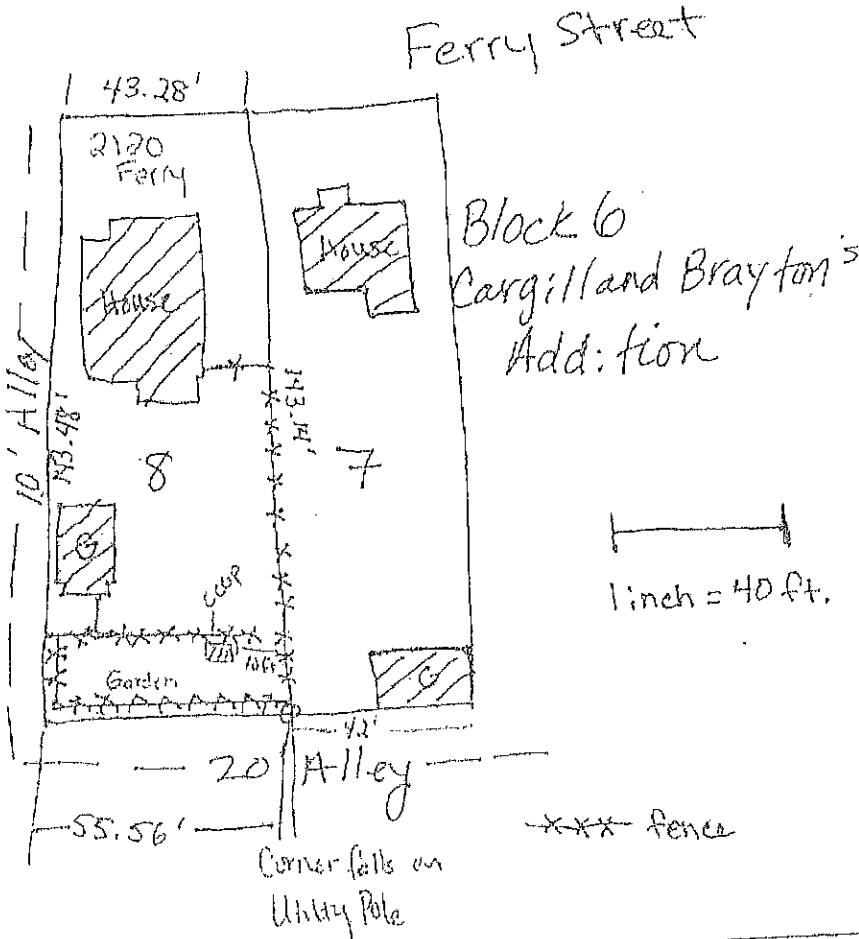 Ferry Street
43.28'
2120
Ferry
House
House
Block 6
Cargill and Brayton's
Addition
10' Alley
143.48'
143.14'
8
7
G
COOP
10ft
Garden
G
1 inch = 40 ft.
42'
20 Alley
55.56'
fence
Corner falls on
Utility Pole